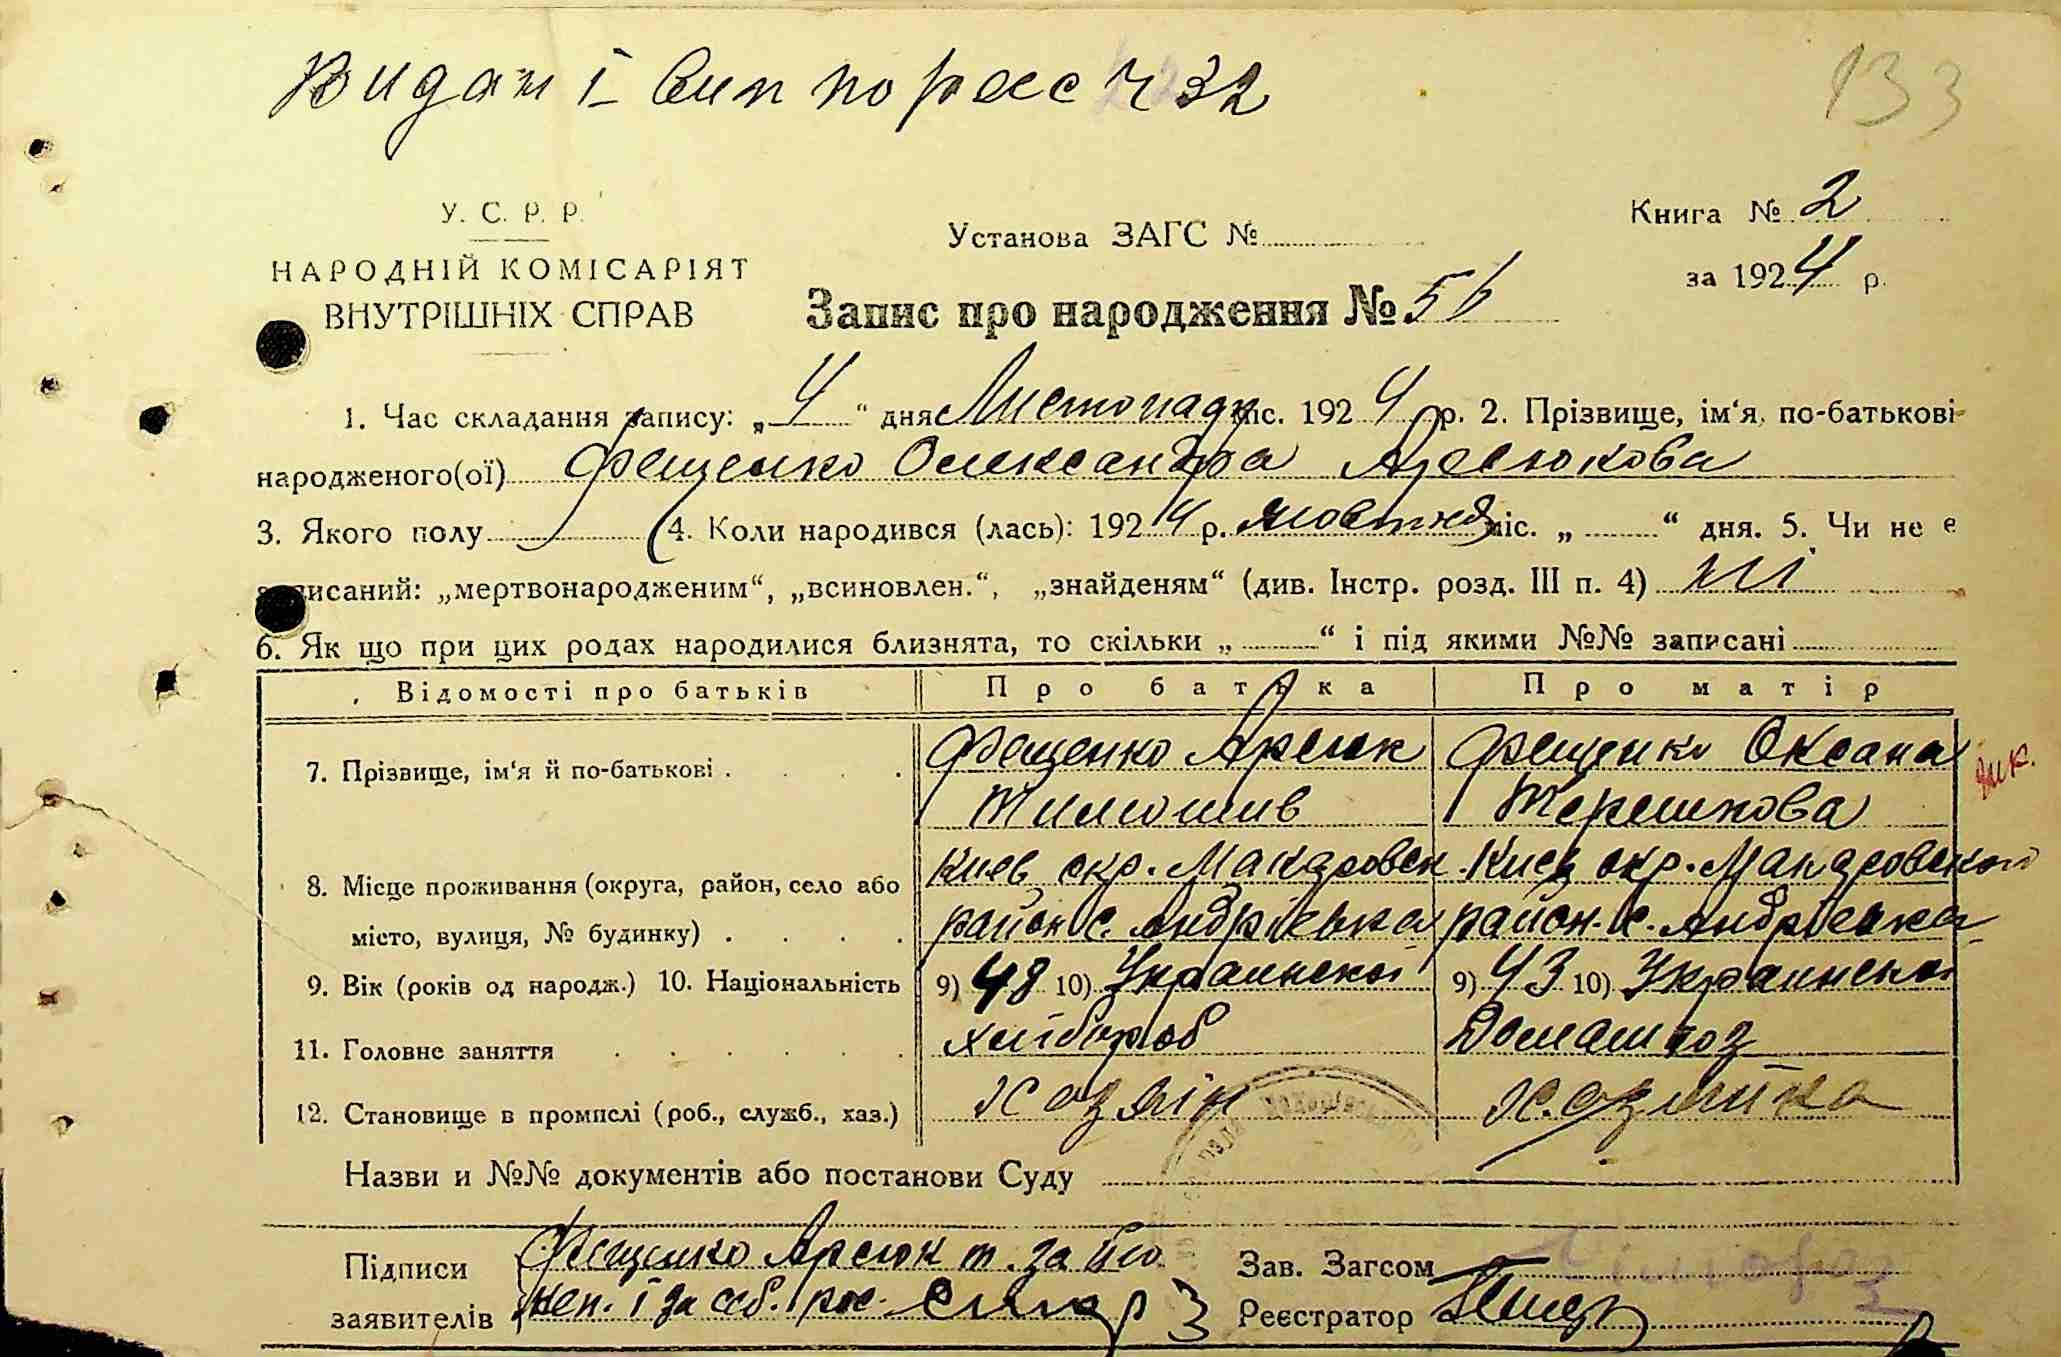 Видан 1 вип по реєс ч 32
133
У. С. Р. Р.
НАРОДНІЙ КОМІСАРІЯТ
ВНУТРІШНІХ СПРАВ
Установа ЗАГС №
Книга № 2
за 1924 р.
Запис про народження № 56
1. Час складання запису: „4“ дня Листопаду міс. 1924 р. 2. Прізвище, ім‘я, по-батькові
народженого(ої) Фещенко Олександра Арсюкова
3. Якого полу 4. Коли народився (лась): 1924 р. жовтня міс. „ “ дня. 5. Чи не є
записаний: „мертвонародженим“, „всиновлен.“, „знайденям“ (див. Інстр. розд. III п. 4) ні
6. Як що при цих родах народилися близнята, то скільки „ “ і під якими №№ записані
Відомості про батьків Про батька Про матір
7. Прізвище, ім‘я й по-батькові . Фещенко Арсюк Фещенко Оксана
Тимошив Терешкова
8. Місце проживання (округа, район, село або Київ окр. Макаровск Київ окр. Макаровской
місто, вулиця, № будинку) . район с. Андріевка район. с. Андріевка
9. Вік (років од народж.) 10. Національність 9) 48 10) Украинской 9) 43 10) Украинской
11. Головне заняття хлібороб Домашхоз
12. Становище в промислі (роб., служб., хаз.) Хозяін Хозяйка
Назви и №№ документів або постанови Суду
Підписи Фещенко Арсюк т. за його
заявителів неп. і за себ. рос.
Зав. Загсом
Реєстратор